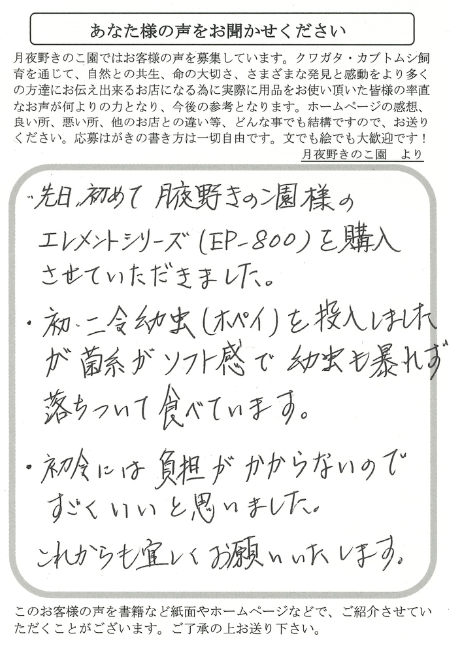 あなた様の声をお聞かせください
月夜野きのこ園ではお客様の声を募集しています。クワガタ・カブトムシ飼
育を通じて、自然との共生、命の大切さ、さまざまな発見と感動をより多く
の方達にお伝え出来るお店になる為に実際に用品をお使い頂いた皆様の率直
なお声が何よりの力となり、今後の参考となります。ホームページの感想、
良い所、悪い所、他のお店との違い等、どんな事でも結構ですので、お送り
ください。応募はがきの書き方は一切自由です。文でも絵でも大歓迎です！
月夜野きのこ園　より
・先日、初めて月夜野きのこ園様の
エレメントシリーズ(EP-800)を購入
させていただきました。
・初・二令幼虫(ホペイ)を投入しました
が菌糸がソフト感で幼虫も暴れず
落ちついて食べています。
・初令には負担がかからないので
すごくいいと思いました。
これからも宜しくお願いいたします。
このお客様の声を書籍など紙面やホームページなどで、ご紹介させてい
ただくことがございます。ご了承の上お送り下さい。